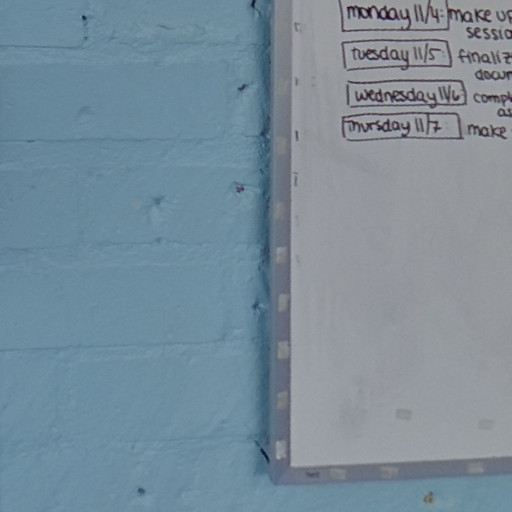 monday 11/4: make up
sessio
Tuesday 11/5: finaliz
docum
wednesday 11/6: compl
as
Thursday 11/7: make